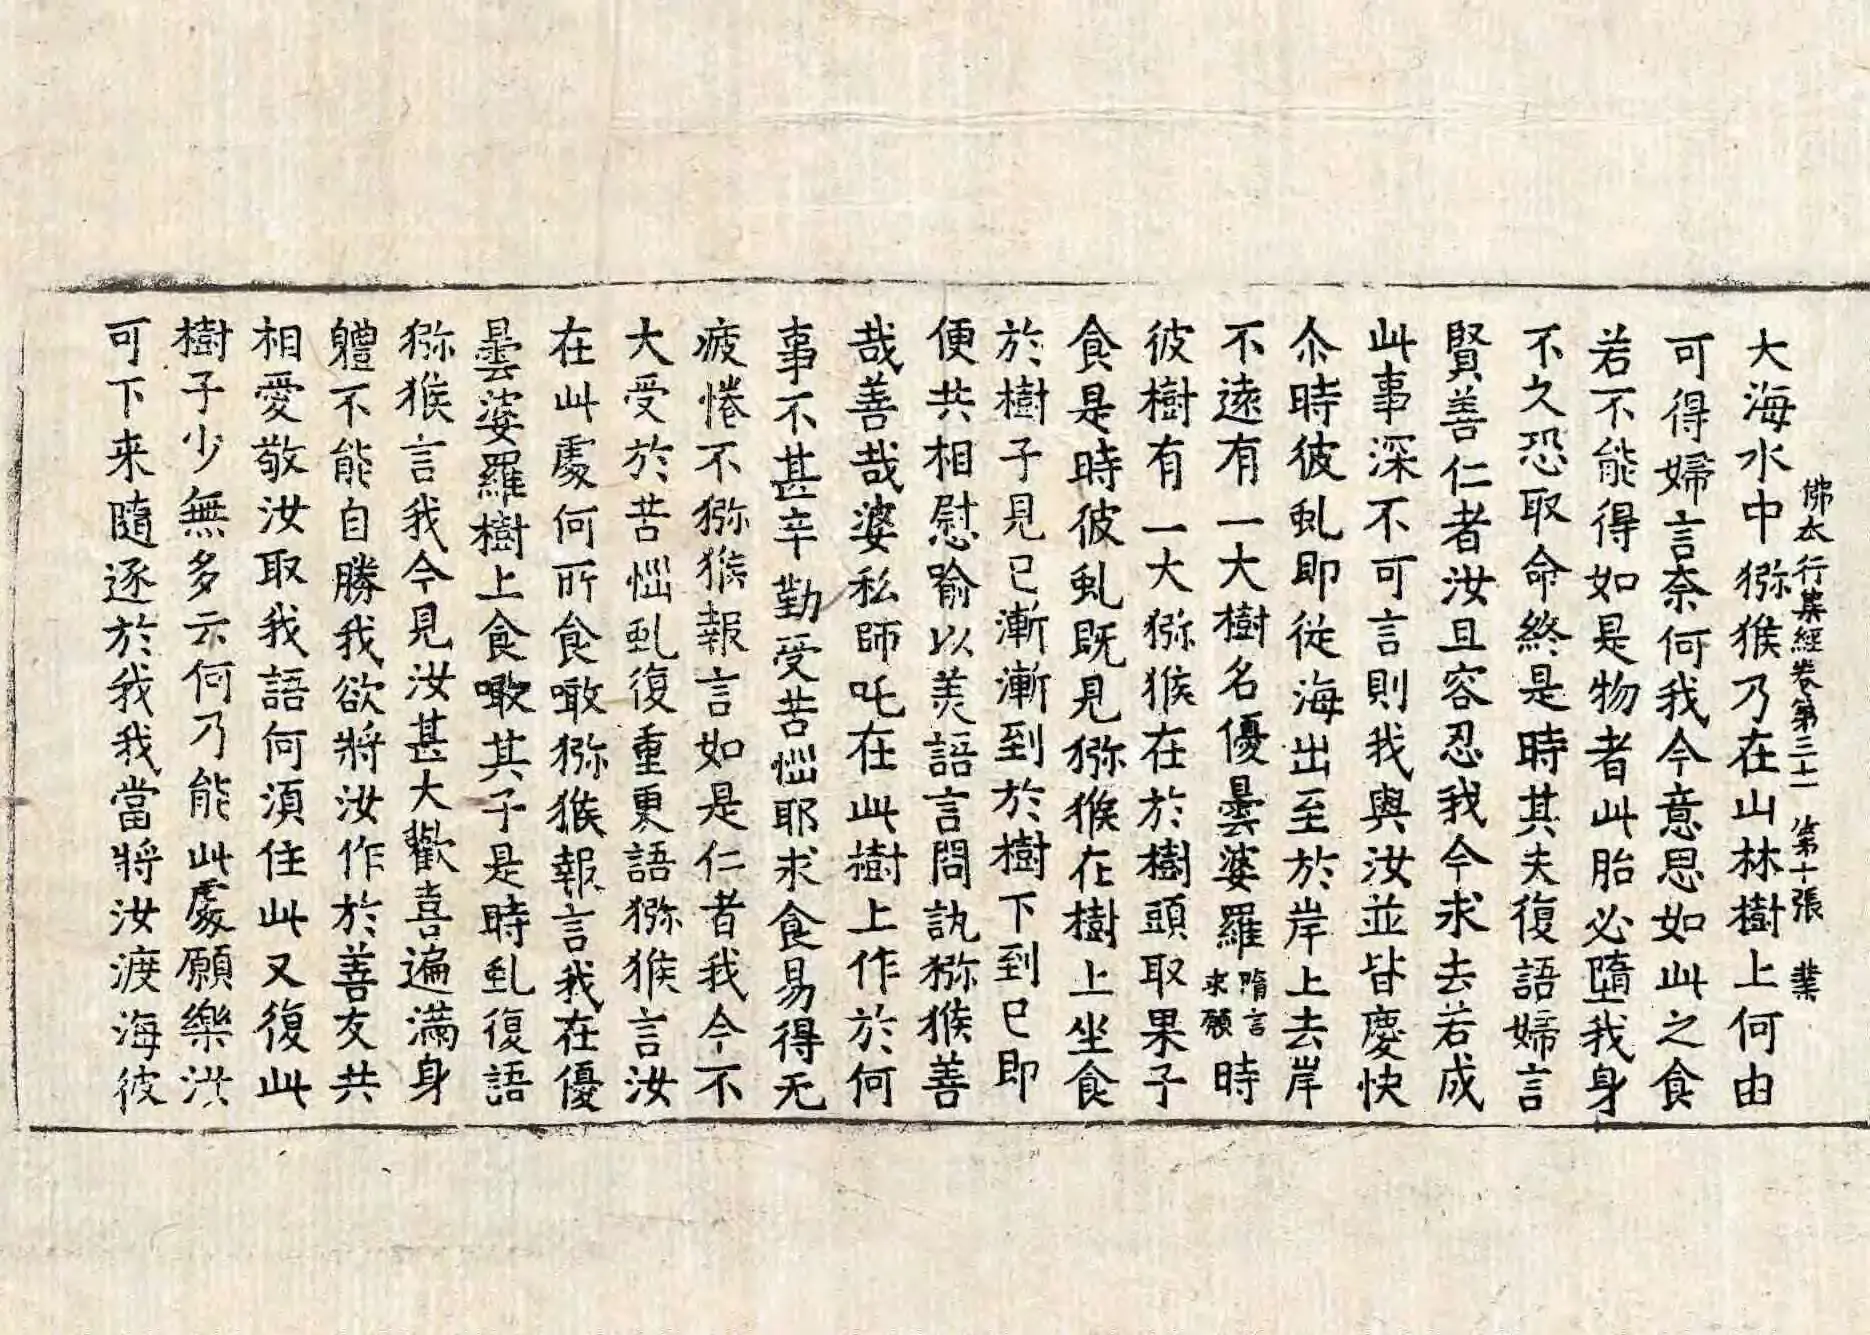 佛本行集經卷第三十一 第十張 業
大海水中猕猴乃在山林樹上何由
可得婦言奈何我今意思如此之食
若不能得如是物者此胎必墮我身
不久恐取命終是時其夫復語婦言
賢善仁者汝且容忍我今求去若成
此事深不可言則我與汝並皆慶快
尒時彼虬即從海出至於岸上去岸
不遠有一大樹名優曇婆羅隋言求願時
彼樹有一大猕猴在於樹頭取果子
食是時彼虬既見猕猴在樹上坐食
於樹子見已漸漸到於樹下到已即
便共相慰喻以美語言問訊猕猴善
哉善哉婆私師吒在此樹上作於何
事不甚辛勤受苦惱耶求食易得无
疲惓不猕猴報言如是仁者我今不
大受於苦惱虬復重更語猕猴言汝
在此處何所食噉猕猴報言我在優
曇婆羅樹上食噉其子是時虬復語
猕猴言我今見汝甚大歡喜遍滿身
軆不能自勝我欲將汝作於善友共
相愛敬汝取我語何須住此又復此
樹子少無多云何乃能此處願樂汝
可下来隨逐於我我當將汝渡海彼